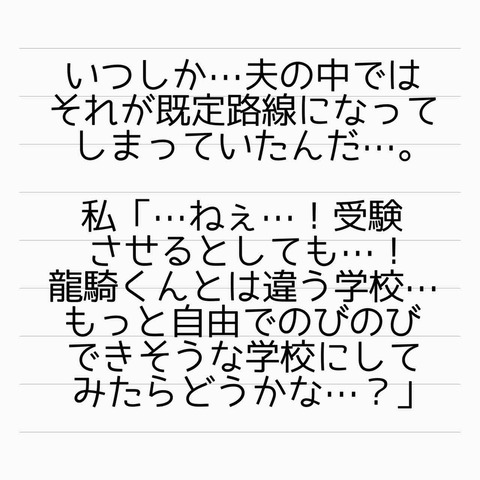 いつしか…夫の中では
それが既定路線になって
しまっていたんだ…。
私「…ねぇ…！受験
させるとしても…！
龍騎くんとは違う学校…
もっと自由でのびのび
できそうな学校にして
みたらどうかな…？」